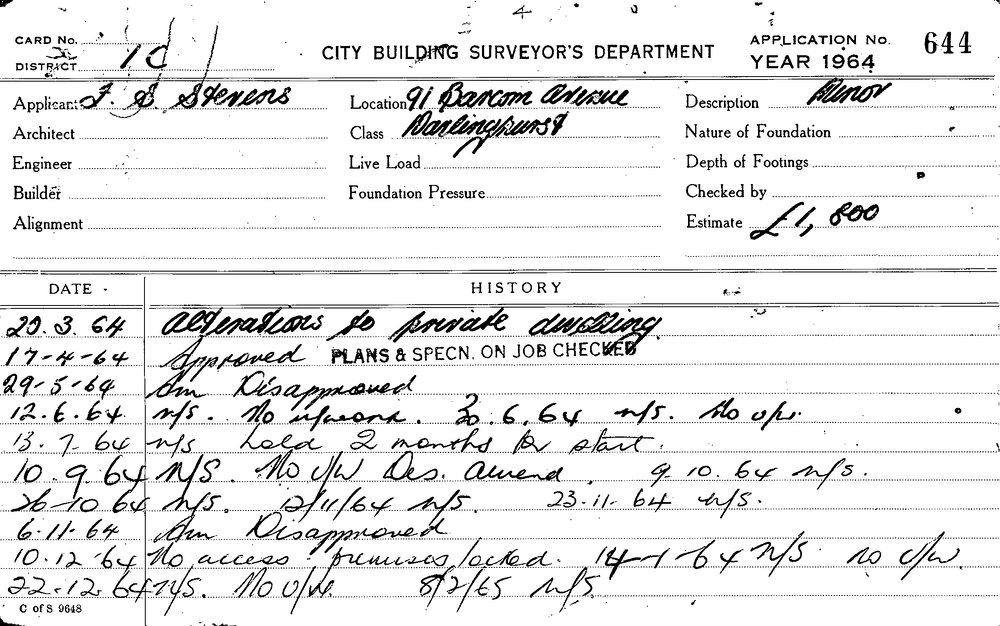 CARD No.
DISTRICT 1C
CITY BUILDING SURVEYOR'S DEPARTMENT
APPLICATION No. 644
YEAR 1964
Applicant F. S. Stevens
Architect
Engineer
Builder
Alignment
Location 91 Barcom Avenue
Class Darlinghurst
Live Load
Foundation Pressure
Description Minor
Nature of Foundation
Depth of Footings
Checked by
Estimate £1,800
DATE HISTORY
20.3.64 Alterations to private dwelling
17-4-64 Approved PLANS & SPECN. ON JOB CHECKED
29-5-64 Am Disapproved
12.6.64 n/s. No u/work. 30.6.64 n/s. No u/w.
13.7.64 n/s hold 2 months for start.
10.9.64 N/S. No U/W Des. Amend. 9.10.64 n/s.
26-10 64 n/s. 12/11/64 n/s. 23.11.64 n/s.
6.11.64 Am Disapproved
10.12.64 No access. premises locked. 14-1-64 N/S. no U/W.
22.12.64 N/S. No U/W. 8/2/65 N/S.
C of S 9648